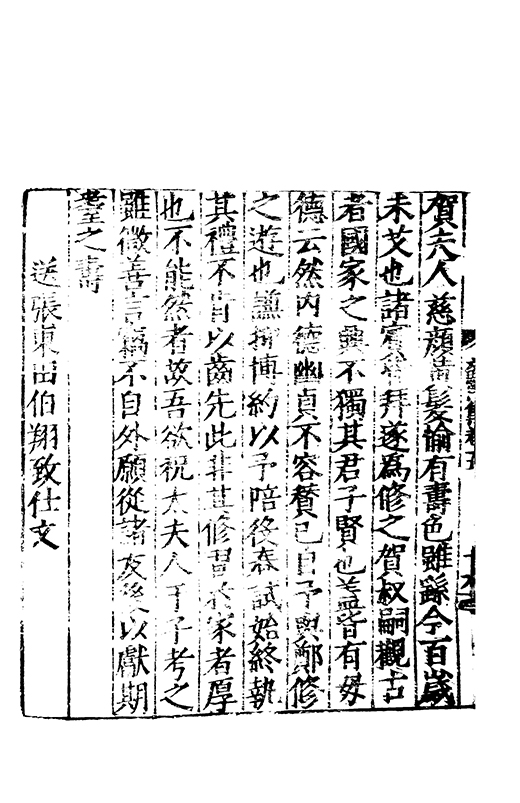 賀太人慈顏清髮愉有壽色雖繇今百歲
未艾也諸賓皆拜遂為修之賀叔嗣觀古
者國家之興不獨其君子賢也蓋皆有母
德云然內德幽貞不容贊已自予與鄭修
之遊也謙撝博約以予陪後春試始終執
其禮不肯以齒先此非其修習於家者厚
也不能然者故吾欲祝太夫人于子考之
雖微善言竊不自外願從諸友後以獻期
耋之壽
送張東田伯翔致仕文
十九